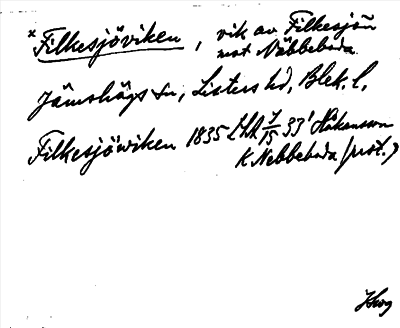 * Filkesjöviken, vik av Filkesjön
mot Näbbeboda.
Jämshögs sn, Listers hd, Blek. l.
Filkesjöwiken 1835 LHA 7/15 33' Håkansson
K Nebbeboda (prot.)